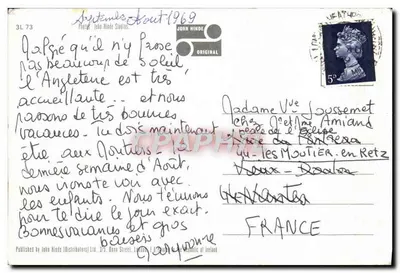 Septembre Août 1969
3L 73
Photo: John Hinde Studios.
JOHN HINDE
ORIGINAL
Malgré qu'il n'y fasse
pas beaucoup de soleil
l'Angleterre est très
accueillante.. et nous
passons de très bonnes
vacances. Tu dois maintenant
être aux Moutiers. La
dernière semaine d'Août,
nous irons te voir avec
les enfants. Nous t'écrirons
pour te dire le jour exact.
Bonnes vacances et gros
baisers
Published by John Hinde (Distributors) Ltd.
5D
Madame Vve Joussemet
chez Mme Amiand
44-les MOUTIER-en Retz
FRANCE